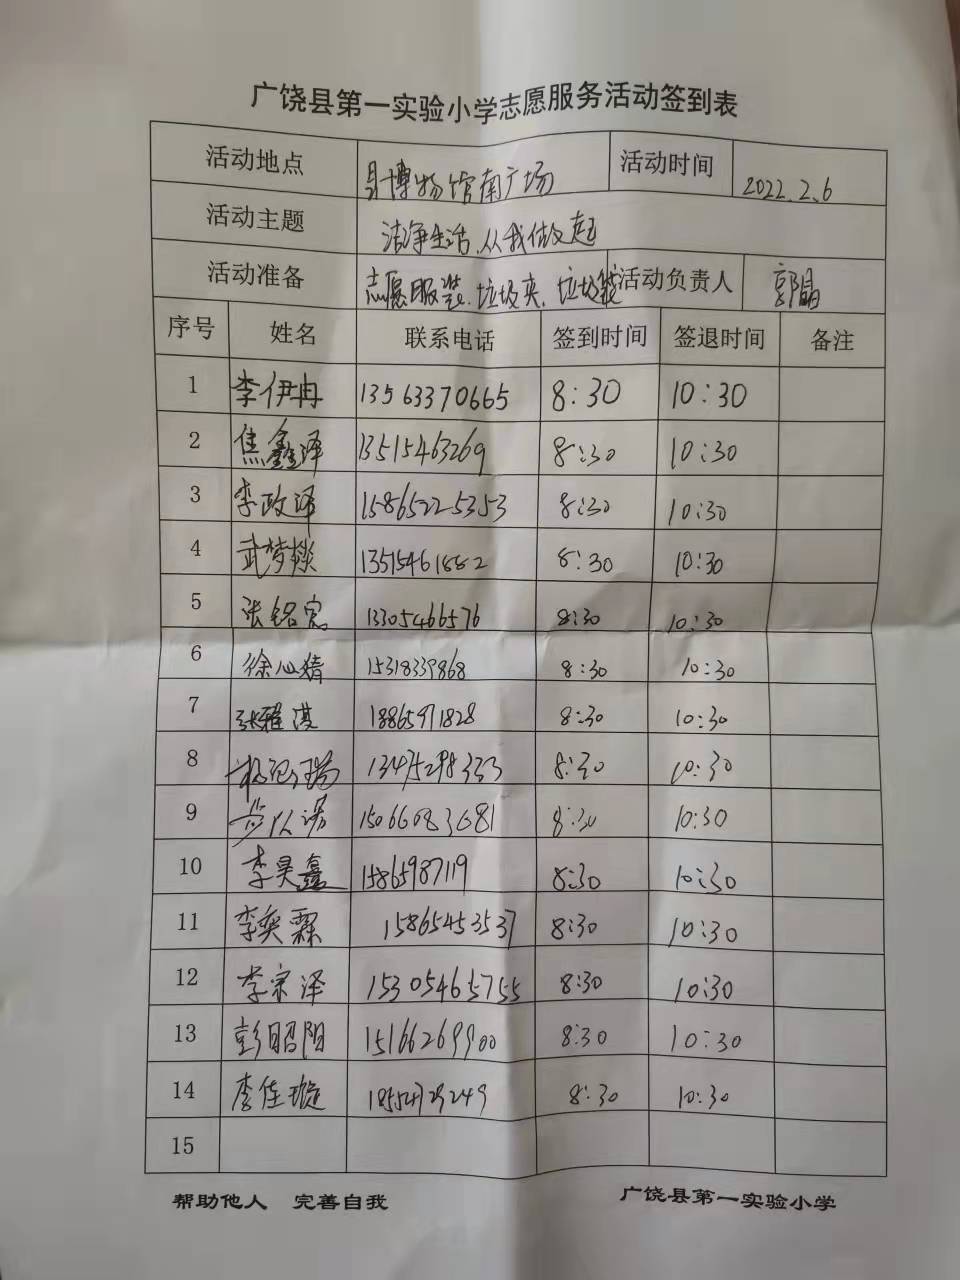 广饶县第一实验小学志愿服务活动签到表
活动地点 县博物馆南广场 活动时间 2022.2.6
活动主题 洁净生活,从我做起
活动准备 志愿服装、垃圾夹、垃圾袋 活动负责人 郭晶
序号 姓名 联系电话 签到时间 签退时间 备注
1 李伊冉 13563370665 8:30 10:30
2 焦鑫泽 13515463269 8:30 10:30
3 李政泽 15865225353 8:30 10:30
4 武梦燚 13515461882 8:30 10:30
5 张铭宸 13305466576 8:30 10:30
6 徐心猜 15318339868 8:30 10:30
7 张雅淇 18865971828 8:30 10:30
8 13475298333 8:30 10:30
9 步以诺 15066083681 8:30 10:30
10 李昊鑫 15865987119 8:30 10:30
11 李奕霖 15865453537 8:30 10:30
12 李宗泽 15305465755 8:30 10:30
13 彭昭阳 15166269900 8:30 10:30
14 李佳璇 8:30 10:30
15
帮助他人 完善自我 广饶县第一实验小学